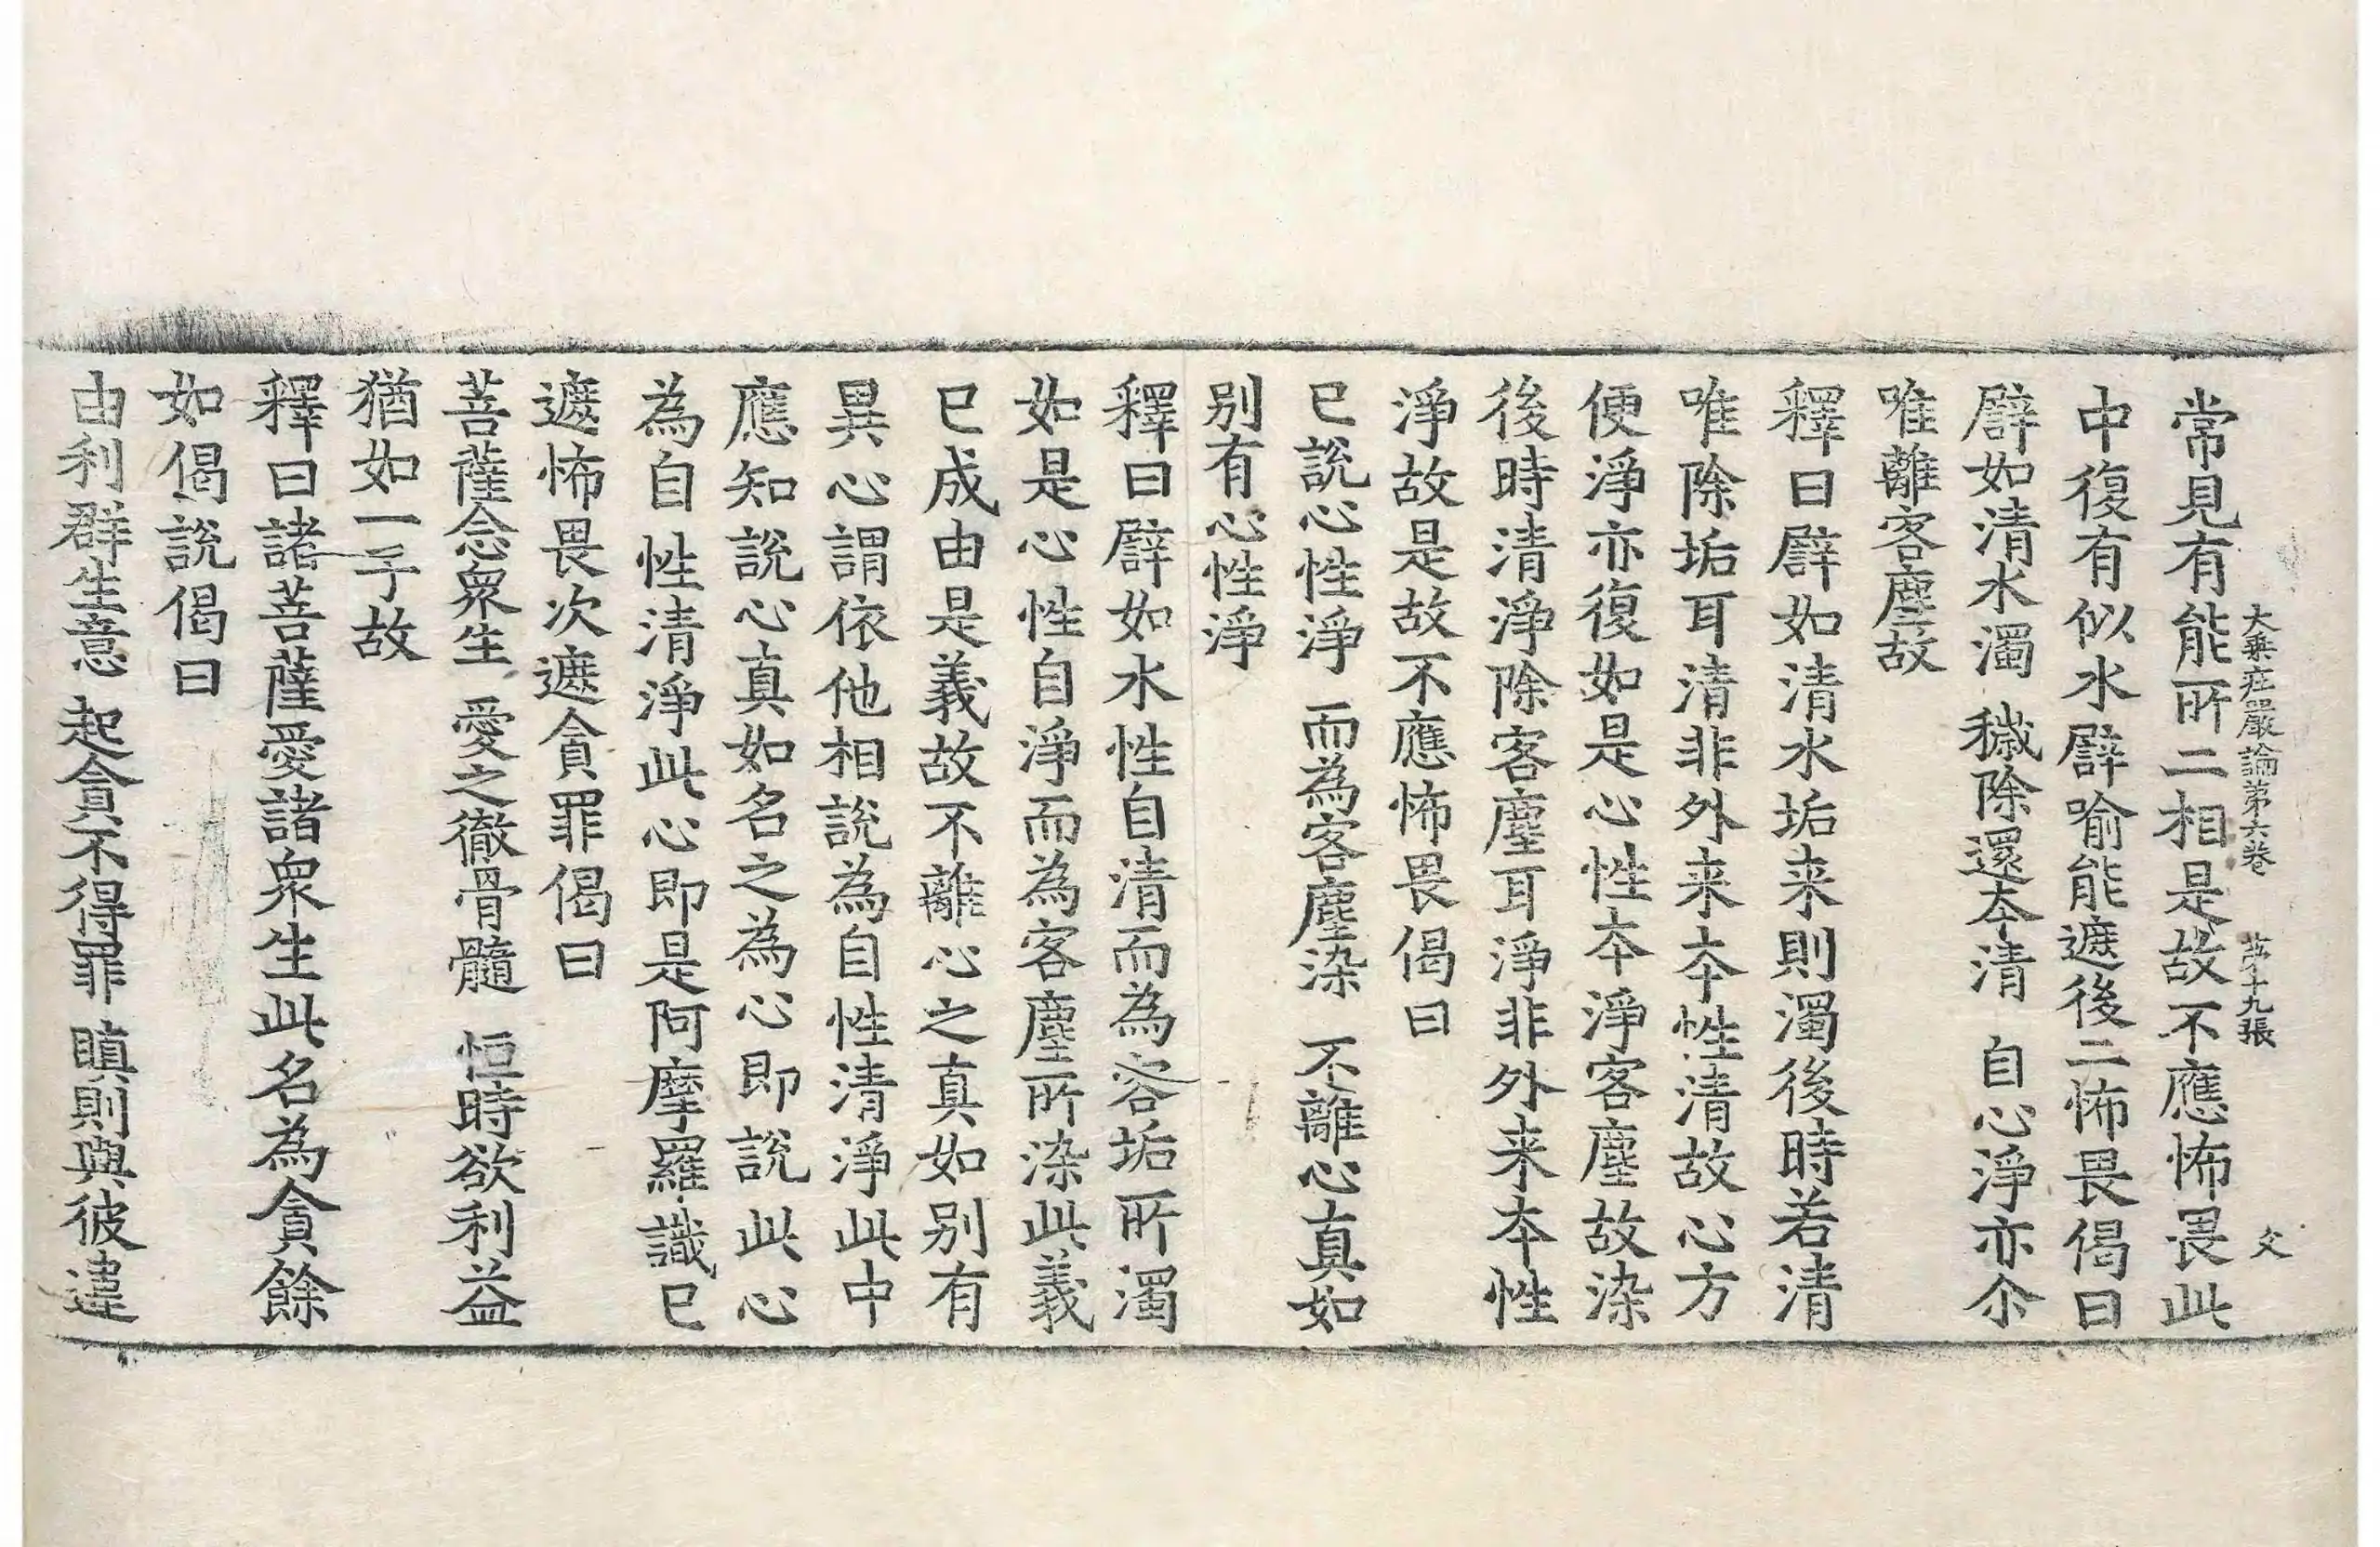 大乘莊嚴論第六卷 第十九張 文
常見有能所二相是故不應怖畏此
中復有似水譬喻能遮後二怖畏偈曰
譬如清水濁 穢除還本清 自心淨亦尒
唯離客塵故
釋曰譬如清水垢来則濁後時若清
唯除垢耳清非外来本性清故心方
便淨亦復如是心性本淨客塵故染
後時清淨除客塵耳淨非外来本性
淨故是故不應怖畏偈曰
已說心性淨 而為客塵染 不離心真如
別有心性淨
釋曰譬如水性自清而為客垢所濁
如是心性自淨而為客塵所染此義
已成由是義故不離心之真如別有
異心謂依他相說為自性清淨此中
應知說心真如名之為心即說此心
為自性清淨此心即是阿摩羅識已
遮怖畏次遮貪罪偈曰
菩薩念衆生 愛之徹骨髓 恒時欲利益
猶如一子故
釋曰諸菩薩愛諸衆生此名為貪餘
如偈說偈曰
由利群生意 起貪不得罪 瞋則與彼違